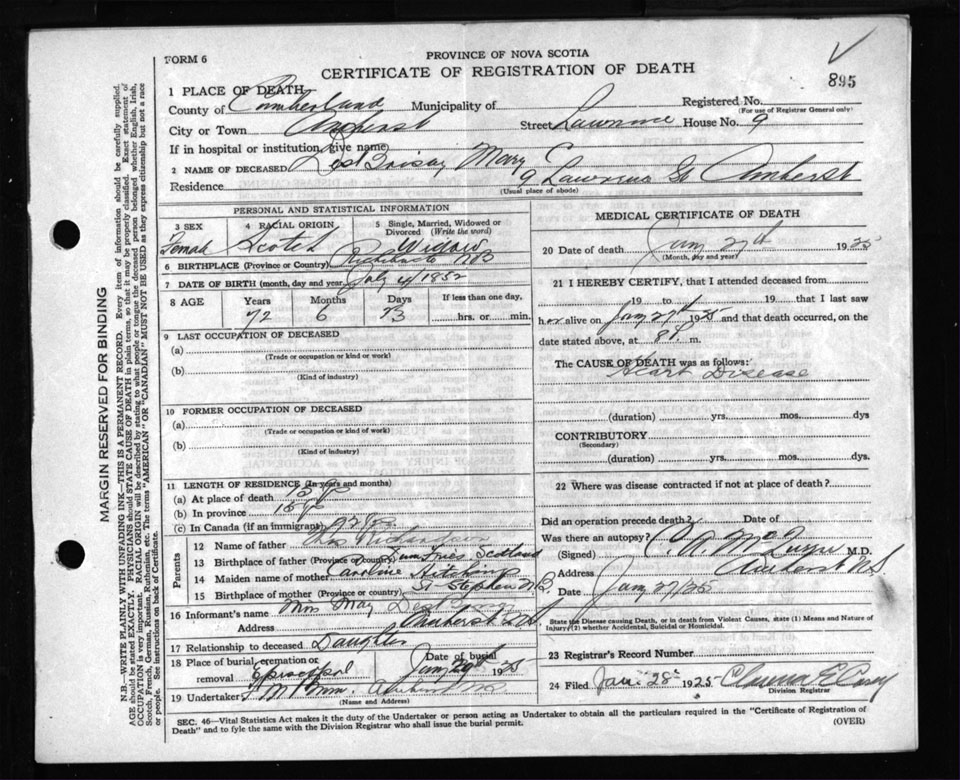 FORM 6
PROVINCE OF NOVA SCOTIA
CERTIFICATE OF REGISTRATION OF DEATH
895
1 PLACE OF DEATH
County of Cumberland Municipality of Registered No.
(For use of Registrar General only)
City or Town Amherst Street Lawrence House No. 9
If in hospital or institution, give name)
2 NAME OF DECEASED DesBrisay Mary C
Residence 9 Lawrence St Amherst
(Usual place of abode)
PERSONAL AND STATISTICAL INFORMATION
3 SEX 4 RACIAL ORIGIN 5 Single, Married, Widowed or Divorced (Write the word)
Female Scotch Widow
6 BIRTHPLACE (Province or Country) Richibucto NB
7 DATE OF BIRTH (month, day and year) July 4 1852
8 AGE Years Months Days If less than one day,
72 6 23 hrs. or min.
9 LAST OCCUPATION OF DECEASED
(a)
(Trade or occupation or kind or work)
(b)
(Kind of industry)
10 FORMER OCCUPATION OF DECEASED
(a)
(Trade or occupation or kind of work)
(b)
(Kind of industry)
11 LENGTH OF RESIDENCE (In years and months)
(a) At place of death
(b) In province
(c) In Canada (if an immigrant)
Parents
12 Name of father Richardson
13 Birthplace of father (Province or Country) Dumfries Scotland
14 Maiden name of mother Caroline Hitchings
15 Birthplace of mother (Province or country) St Stephen N.B.
16 Informant's name Miss May DesBrisay
Address Amherst N.S.
17 Relationship to deceased Daughter
18 Place of burial, cremation or removal Date of burial
Episcopal Jany 29th 1925
19 Undertaker Amherst NS
(Name and Address)
MEDICAL CERTIFICATE OF DEATH
20 Date of death Jany 27th 1925
(Month, day and year)
21 I HEREBY CERTIFY, that I attended deceased from
19 to 19 that I last saw
her alive on Jany 27th 1925 and that death occurred, on
date stated above, at 8 m.
The CAUSE OF DEATH was as follows:
Heart Disease
(duration) yrs. mos. dys
CONTRIBUTORY
(Secondary)
(duration) yrs. mos. dys.
22 Where was disease contracted if not at place of death?
Did an operation precede death? Date of
Was there an autopsy?
(Signed) M.D.
Address Amherst NS
Date Jany 27/25
State the Disease causing Death, or in death from Violent Causes, state (1) Means and Nature of
Injury; (2) whether Accidental, Suicidal or Homicidal.
23 Registrar's Record Number
24 Filed Jan. 28th 1925 Clarence E Casey
Division Registrar
SEC. 46—Vital Statistics Act makes it the duty of the Undertaker or person acting as Undertaker to obtain all the particulars required in the "Certificate of Registration of
Death" and to fyle the same with the Division Registrar who shall issue the burial permit.
(OVER)
MARGIN RESERVED FOR BINDING
N.B.—WRITE PLAINLY WITH UNFADING INK—THIS IS A PERMANENT RECORD. Every item of information should be carefully supplied.
AGE should be stated EXACTLY. PHYSICIANS should STATE CAUSE OF DEATH in plain terms, so that it may be properly classified. Exact statement of
OCCUPATION is very important. RACIAL ORIGIN will be described by stating to what people or tongue the deceased person belonged whether English, Irish,
Scotch, French, German, Russian, Ruthenian, etc. The terms "AMERICAN" OR "CANADIAN" MUST NOT BE USED as they express citizenship but not a race
or people. See instructions on back of Certificate.